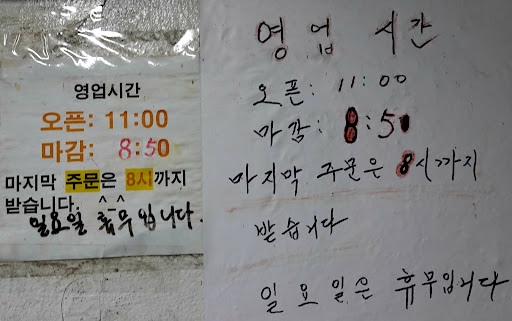 영업시간
오픈: 11:00
마감: 8:50
마지막 주문은 8시까지
받습니다. ^ ^
일요일 휴무입니다.
영업 시간
오픈: 11:00
마감: 8:50
마지막 주문은 8시까지
받습니다
일요일은 휴무입니다